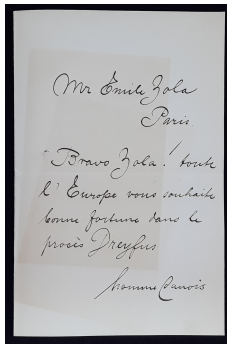 Mr Emile Zola
Paris.
"Bravo Zola! toute
l'Europe vous souhaite
bonne fortune dans le
procès Dreyfus
homme Danois